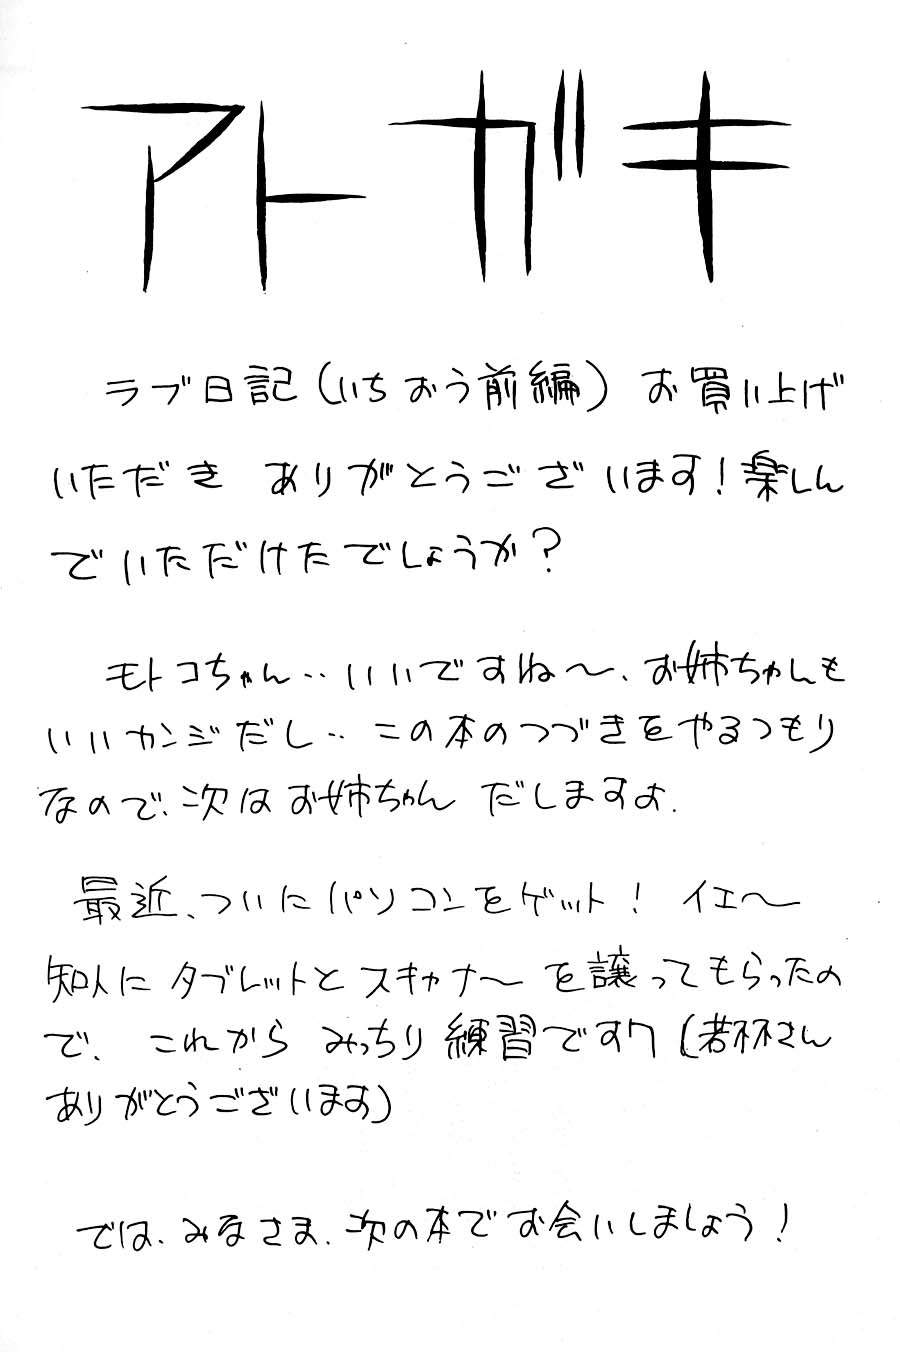 アトガキ
ラブ日記(いちおう前編) お買い上げ
いただき ありがとうございます!楽しん
でいただけたでしょうか?
モトコちゃん‥いいですね〜、お姉ちゃんも
いいカンジだし‥この本のつづきをやるつもり
なので、次はお姉ちゃん だしますよ.
最近、ついにパソコンをゲット! イエ〜
知人に タブレットと スキャナ〜 を譲ってもらったの
で、 これから みっちり 練習ですワ (若林さん
ありがとうございます)
では、みなさま、次の本でお会いしましょう!